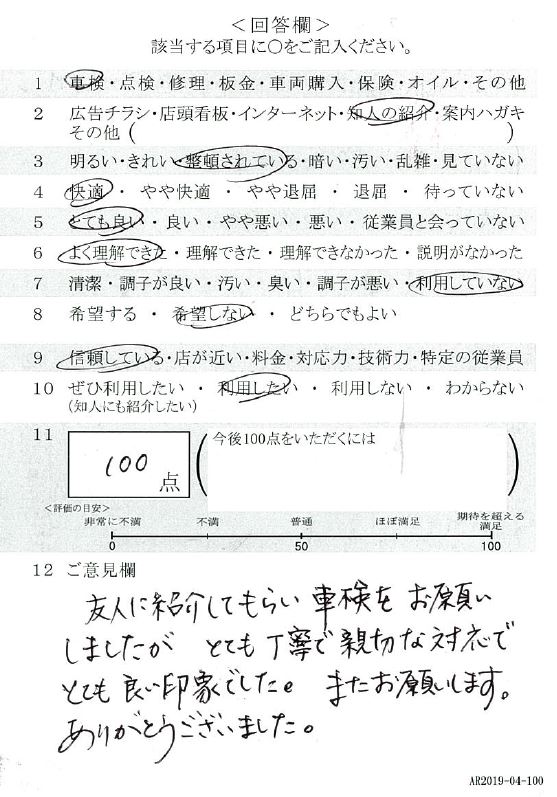 ＜回答欄＞
該当する項目に○をご記入ください。
1 車検・点検・修理・板金・車両購入・保険・オイル・その他
2 広告チラシ・店頭看板・インターネット・知人の紹介・案内ハガキ
その他 ( )
3 明るい・きれい・整頓されている・暗い・汚い・乱雑・見ていない
4 快適 ・ やや快適 ・ やや退屈 ・ 退屈 ・ 待っていない
5 とても良い・良い・やや悪い・悪い・従業員と会っていない
6 よく理解できた・理解できた・理解できなかった・説明がなかった
7 清潔・調子が良い・汚い・臭い・調子が悪い・利用していない
8 希望する ・ 希望しない ・ どちらでもよい
9 信頼している・店が近い・料金・対応力・技術力・特定の従業員
10 ぜひ利用したい ・ 利用したい ・ 利用しない ・ わからない
(知人にも紹介したい)
11 100 点 (今後100点をいただくには )
＜評価の目安＞
非常に不満 不満 普通 ほぼ満足 期待を超える満足
0 50 100
12 ご意見欄
友人に紹介してもらい 車検を お願い
しましたが とても丁寧で親切な対応で
とても良い印象でした。 またお願いします。
ありがとうございました。
AR2019-04-100